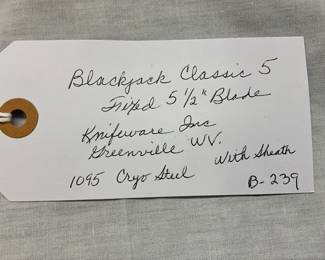 Blackjack Classic 5
Fixed 5 1/2" Blade
Knifeware Inc
Greenville WV.
With Sheath
1095 Cryo Steel
B-239